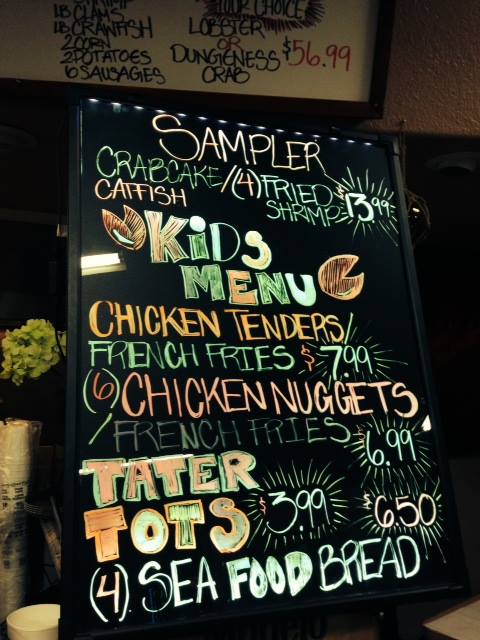 SHRIMP
1LB CLAMS
1LB CRAWFISH
2 CORN
2 POTATOES
6 SAUSAGES
YOUR CHOICE
LOBSTER
OR
DUNGENESS
CRAB
$56.99
SAMPLER
CRABCAKE/(4)FRIED
CATFISH SHRIMP $13.99
KiDS
MENU
CHICKEN TENDERS/
FRENCH FRIES $7.99
(6) CHICKEN NUGGETS
/FRENCH FRIES $6.99
TATER
TOTS $3.99
$6.50
(4) SEA FOOD BREAD